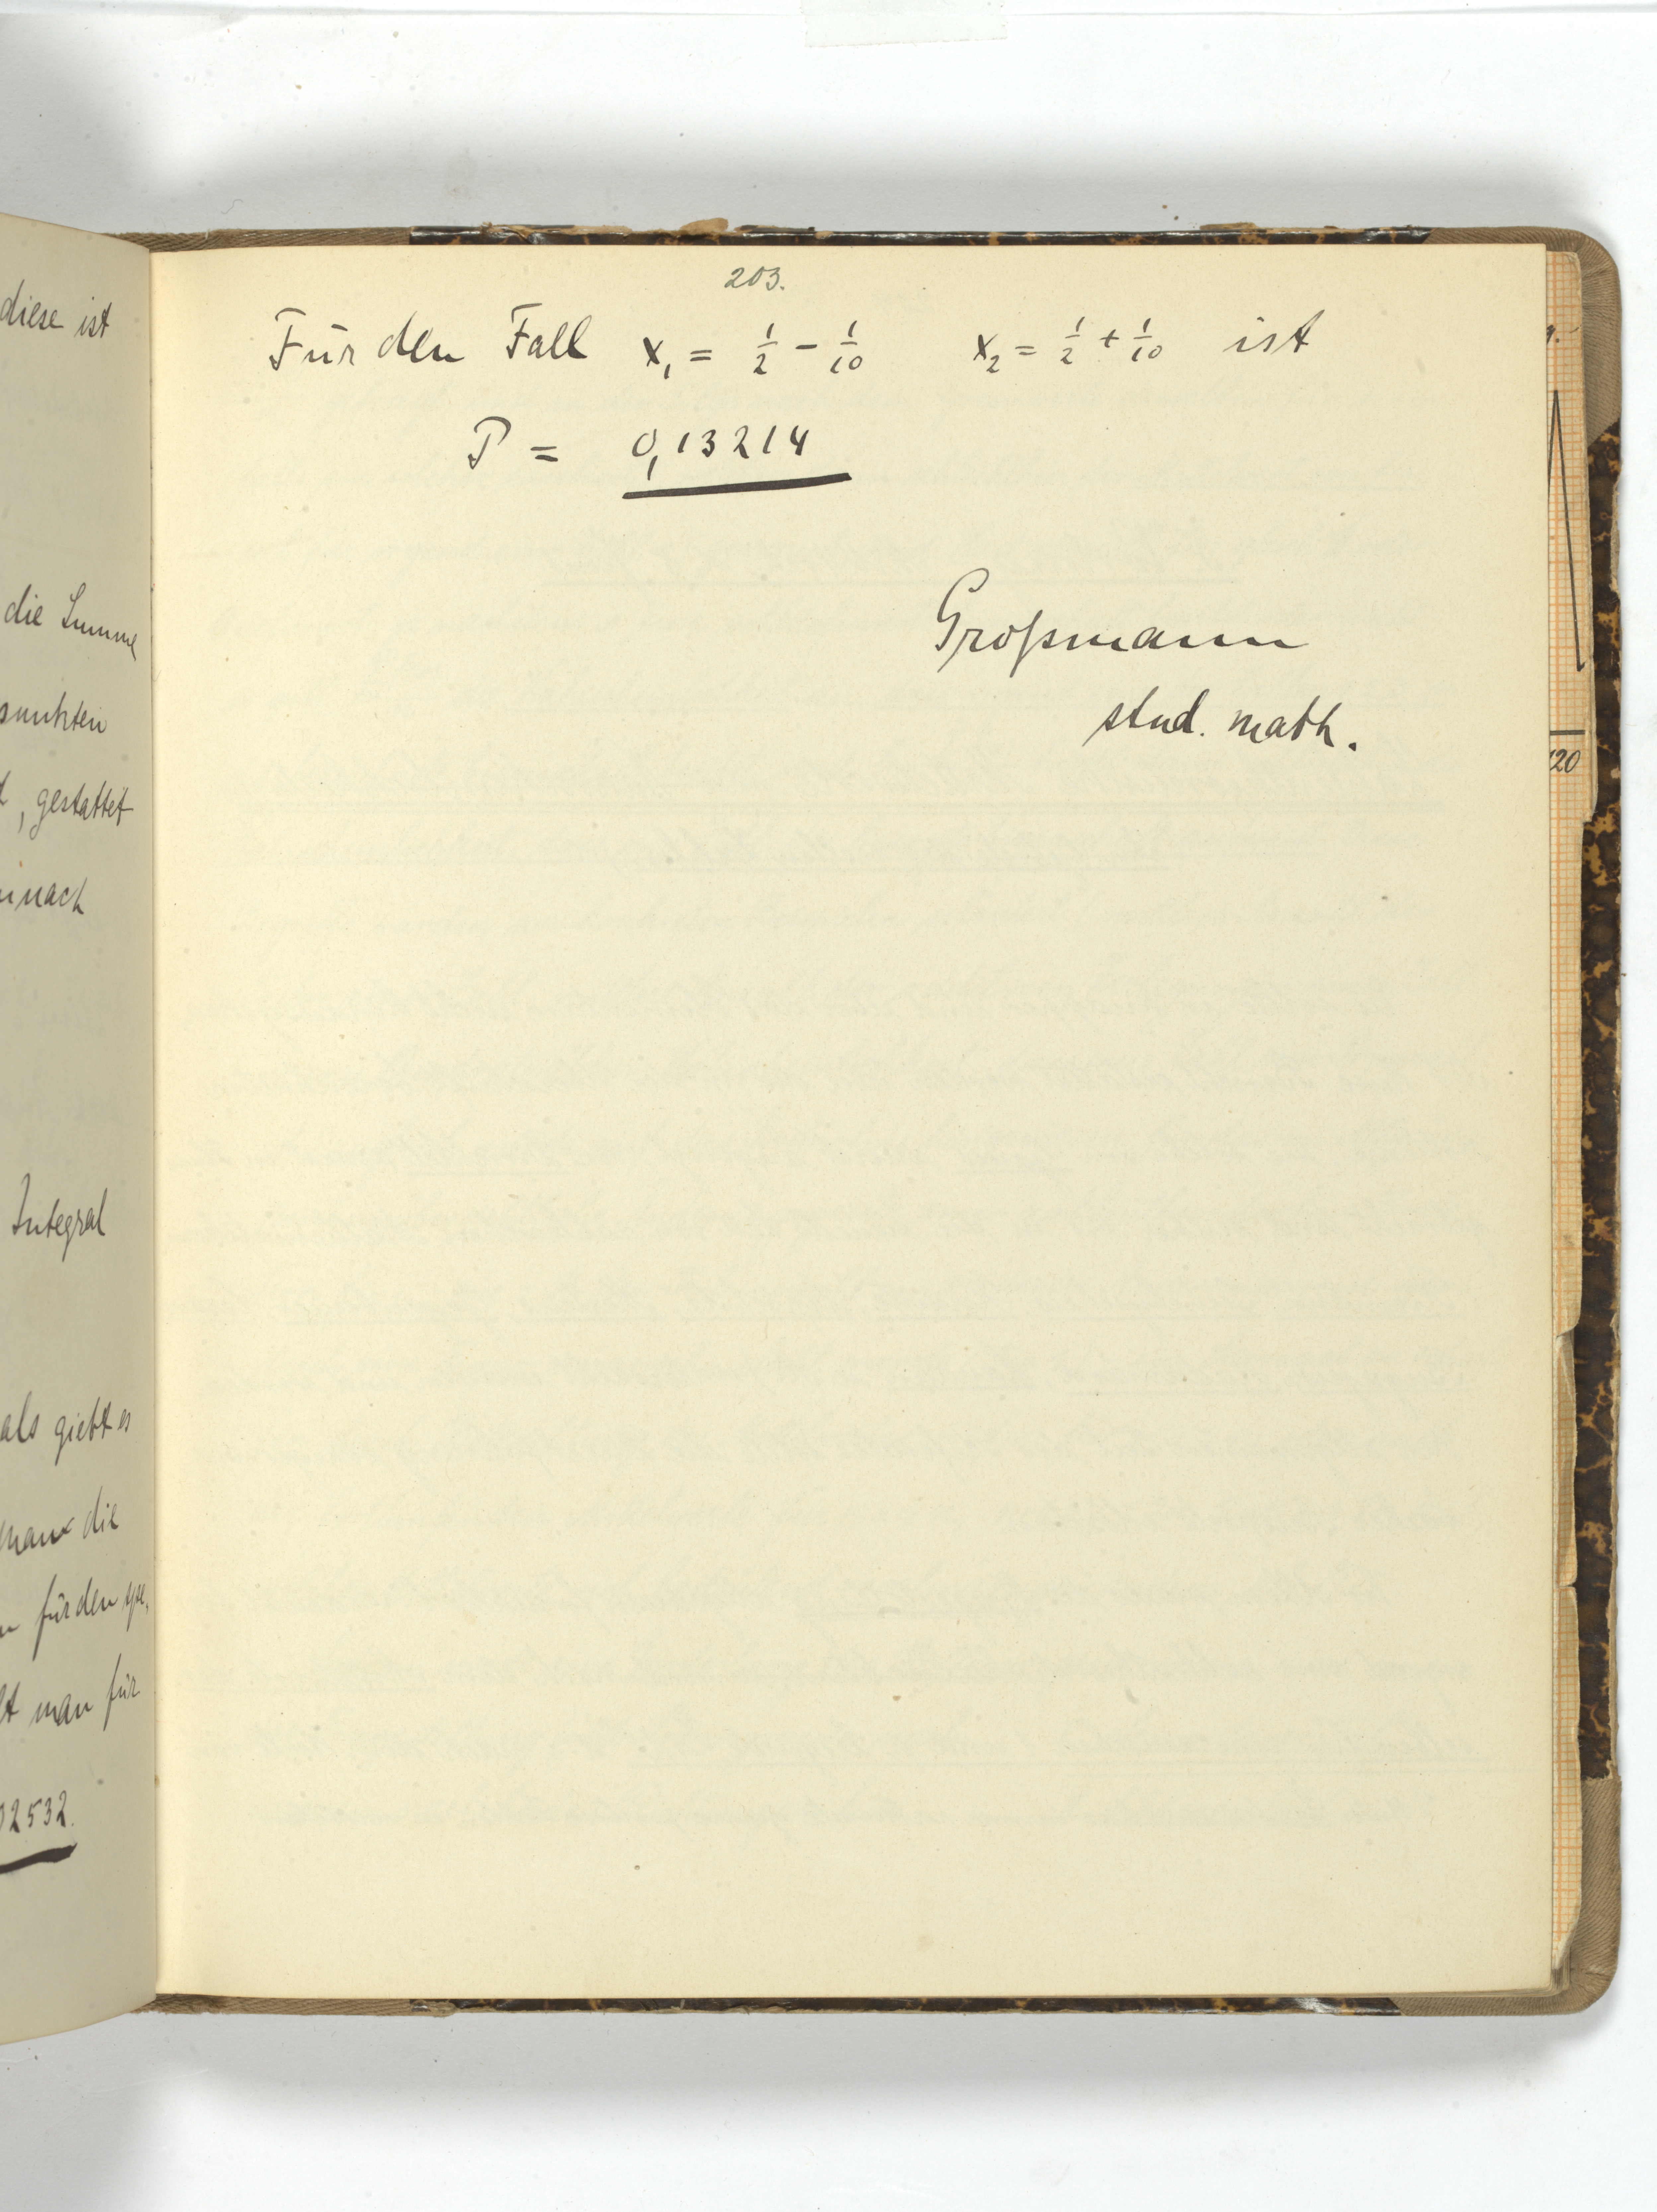 diese ist
die Summe
punkten
, gestattet
nach
Integral
als giebt es
man die
für den
man für
02532.
203.
Für den Fall x₁ = 1/2 − 1/10 x₂ = 1/2 + 1/10 ist
P = 0,13214
Großmann
stud. math.
120